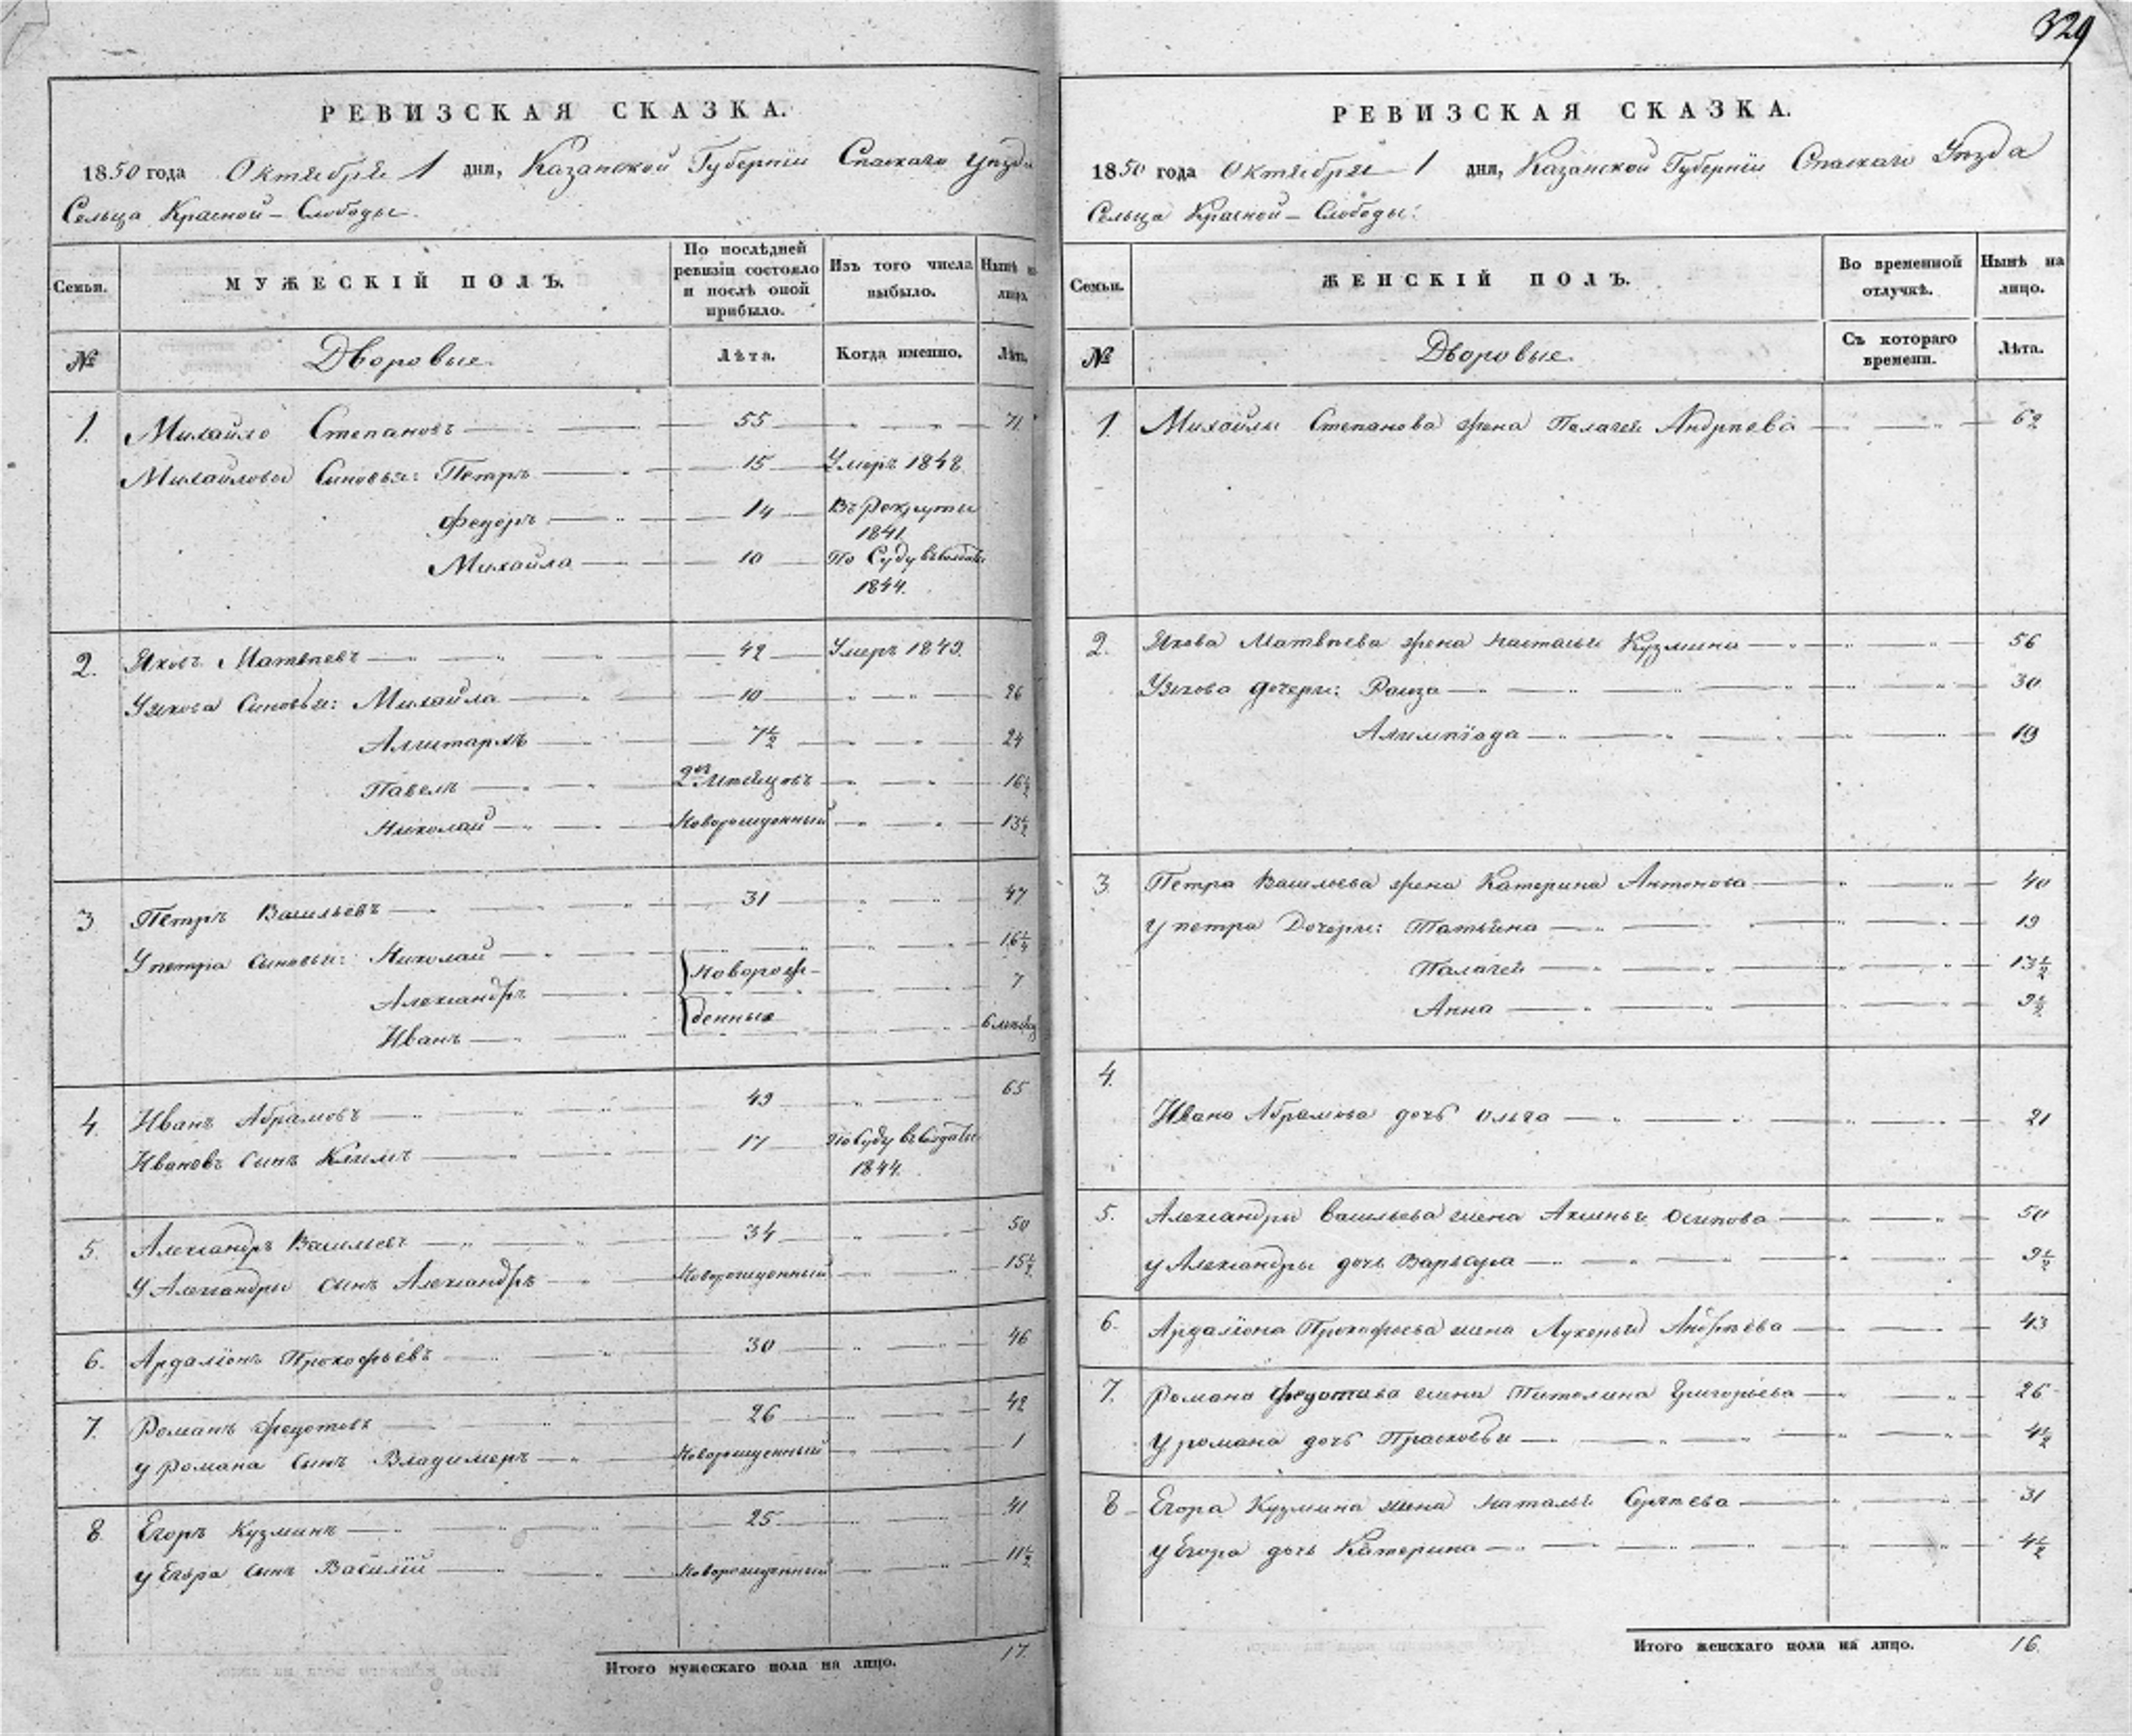 329
РЕВИЗСКАЯ СКАЗКА.
1850 года Октября 1 дня, Казанской Губернiи Спаскаго Уѣзда
Сельца Красной – Слободы.
Семьи. МУЖЕСКІЙ ПОЛЪ. По послѣдней ревизіи состояло и послѣ оной прибыло. Изъ того числа выбыло. Нынѣ на лицо.
№ Дворовые. Лѣта. Когда именно. Лѣта.
1. Михайло Степановъ 55 71
Михайловы Сыновья: Петръ 15 Умеръ 1848.
Федоръ 14 Въ Рекруты 1841
Михайла 10 По Суду въ солдаты 1844.
2. Яковъ Матвѣевъ 42 Умеръ 1849.
Уякова Сыновьи: Михайла 10 26
7½ 24
Павелъ 16½
Николай Новорожденный 13½
3 Петръ Васильевъ 31 47
У петра Сыновьи: Николай Новорож- 16¼
Александръ 7
Иванъ денные 6 мѣсяц
4. Иванъ Абрамовъ 49 65
Ивановъ Сынъ Климъ 17 По Суду въ Солдаты 1844.
5. Александръ Васильевъ 34 50
У Александры сынъ Александръ Новорожденный 15½
6. Ардалiонъ Прокофьевъ 30 46
7. Романъ Федотовъ 26 42
у Романа Сынъ Владимеръ Новорожденный 1
8 Егоръ Кузминъ 25 41
у Егора Сынъ Василiй Новорожденный 11½
Итого мужескаго пола на лицо. 17.
РЕВИЗСКАЯ СКАЗКА.
1850 года Октября 1 дня, Казанской Губернiи Спаскаго Уѣзда
Сельца Красной – Слободы.
Семьи. ЖЕНСКІЙ ПОЛЪ. Во временной отлучкѣ. Нынѣ на лицо.
№ Дворовые. Съ котораго времени. Лѣта.
1. Михайлы Степанова жена Палагея Андрѣева 62
2. Якова Матвѣева жена Настасья Кузмина 56
Уякова дочери: Раиза 30
Алимпiада 19
3. Петра Васильева жена Катерина Антонова 40
У петра Дочери: Татьяна 19
Палагея 13½
Анна 9½
4.
Ивана Абрамова дочь Ольга 21
5. Александры Васильева жена Аксинья Осипова 50
у Александры дочь Варвара 9½
6. Ардалiона Прокофьева жена Лукерья Андрѣева 43
7. Романа Федотава жена Григорьева 26
У романа дочь Прасковья 4½
8 Егора Кузмина жена Наталья Сергѣева 31
у Егора дочь Катерина 4½
Итого женскаго пола на лицо. 16.